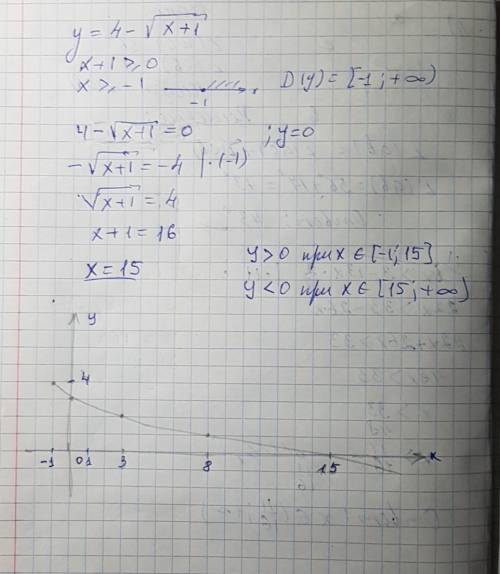 y = 4 - √(x+1)
x+1 ≥ 0
x ≥ -1 -1 D(y) = [-1; +∞)
4 - √(x+1) = 0 ; y=0
-√(x+1) = -4 | ·(-1)
√(x+1) = 4
x+1 = 16
x = 15
y > 0 при x ∈ [-1; 15]
y < 0 при x ∈ [15; +∞)
y
4
-1 0 1 3 8 15 x